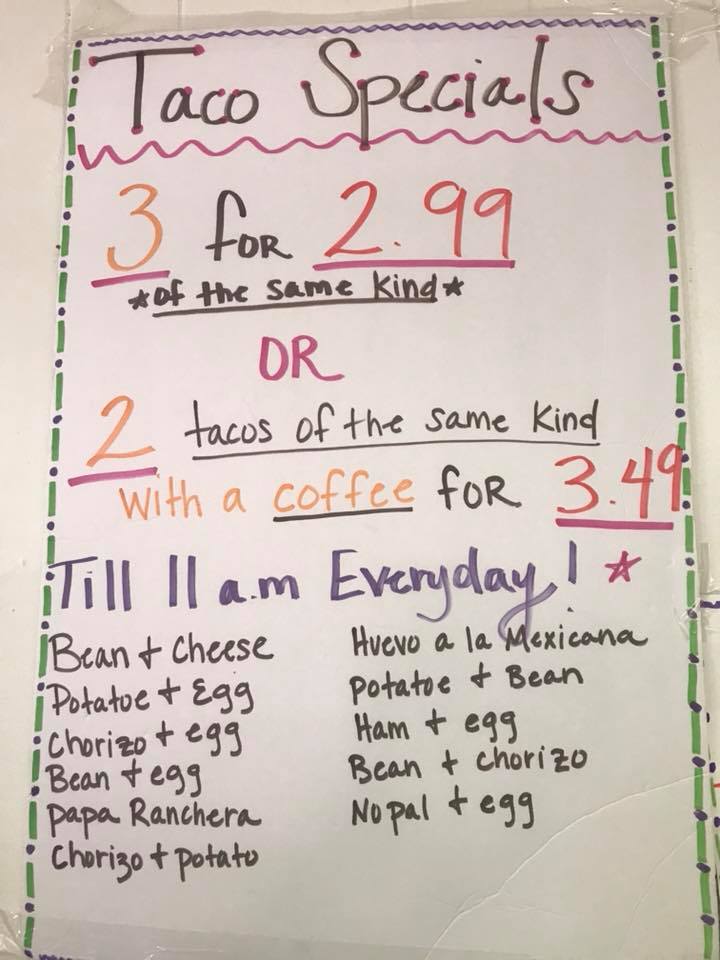 Taco Specials
3 for 2.99
*of the same kind*
OR
2 tacos of the same kind
with a coffee for 3.49
Till 11 a.m Everyday! *
Bean + Cheese
Potatoe + Egg
Chorizo + egg
Bean + egg
Papa Ranchera
Chorizo + potato
Huevo a la Mexicana
Potatoe + Bean
Ham + egg
Bean + chorizo
Nopal + egg